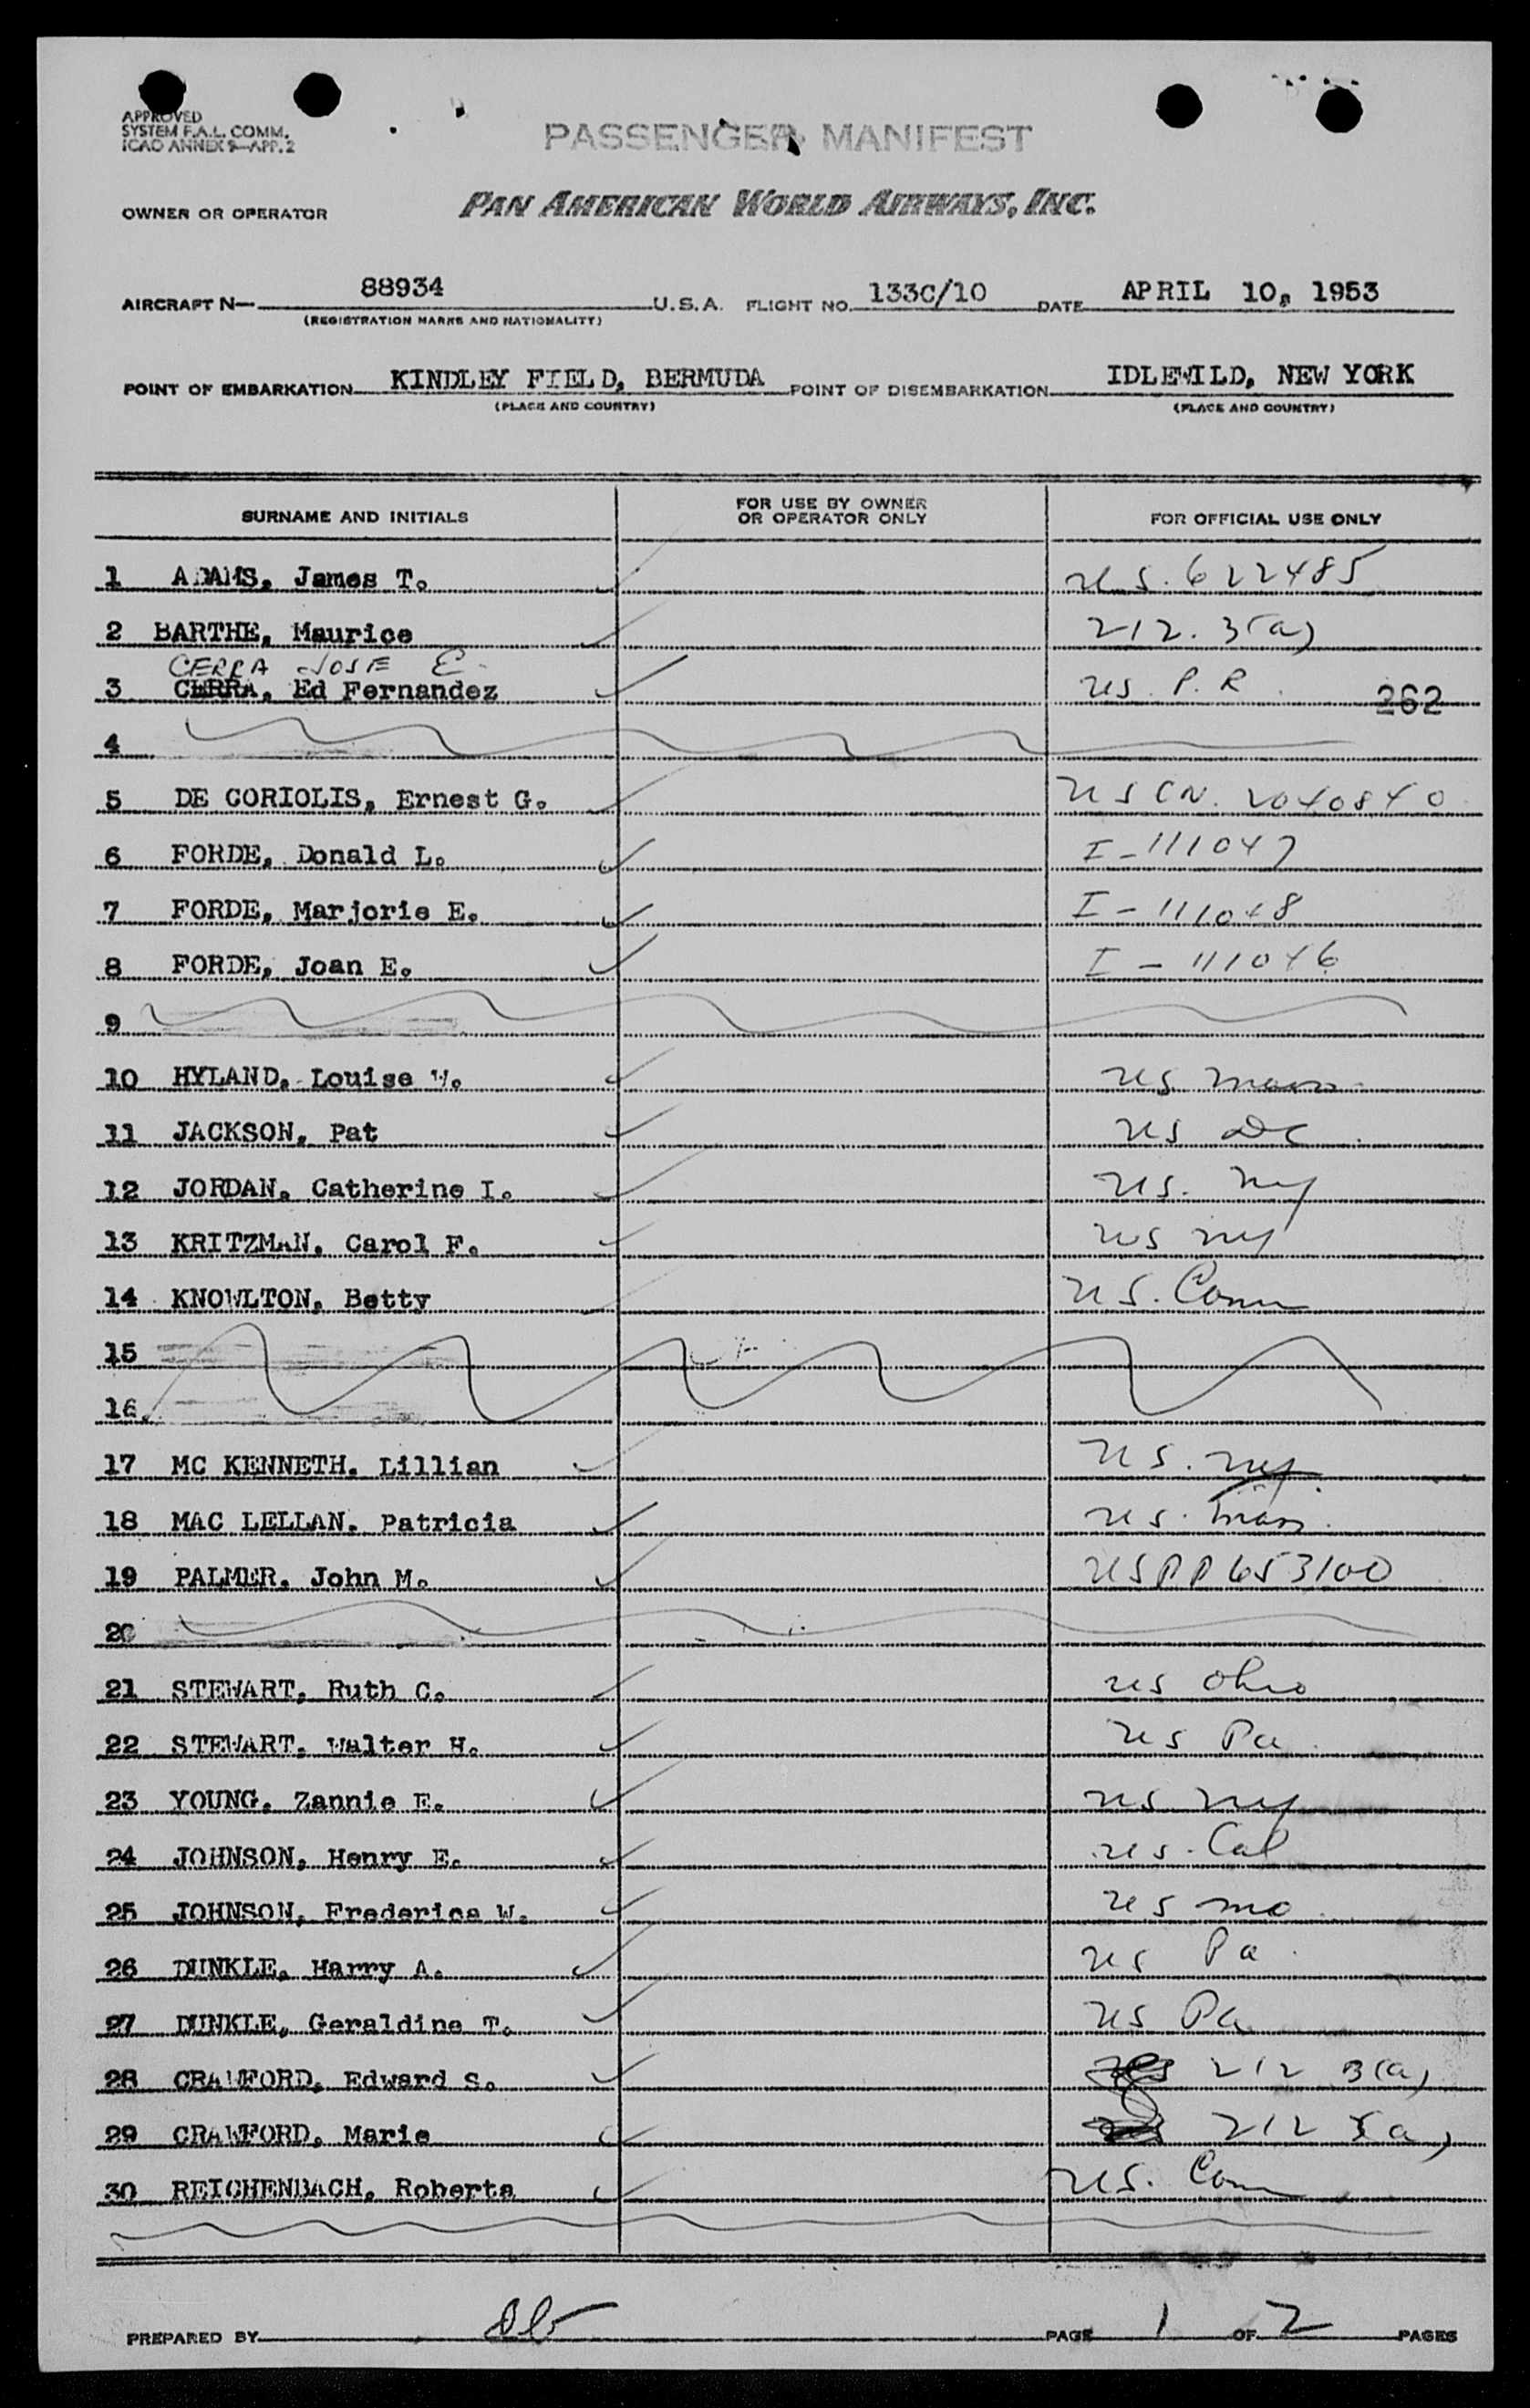 APPROVED
SYSTEM F.A.L. COMM.
ICAO ANNEX 9—APP. 2
PASSENGER MANIFEST
OWNER OR OPERATOR PAN AMERICAN WORLD AIRWAYS, INC.
AIRCRAFT N— 88934 U.S.A. FLIGHT NO. 133C/10 DATE APRIL 10, 1953
(REGISTRATION MARKS AND NATIONALITY)
POINT OF EMBARKATION KINDLEY FIELD, BERMUDA POINT OF DISEMBARKATION IDLEWILD, NEW YORK
(PLACE AND COUNTRY) (PLACE AND COUNTRY)
SURNAME AND INITIALS FOR USE BY OWNER OR OPERATOR ONLY FOR OFFICIAL USE ONLY
1 ADAMS, James T. US. 622485
2 BARTHE, Maurice 212. 3(a)
CERRA JOSE E.
3 CERRA, Ed Fernandez US. P.R. 262
4
5 DE CORIOLIS, Ernest G. US CN. 2040840
6 FORDE, Donald L. I-111047
7 FORDE, Marjorie E. I-111048
8 FORDE, Joan E. I-111046
9
10 HYLAND, Louise W. US Mass
11 JACKSON, Pat US DC
12 JORDAN, Catherine I. US. NY
13 KRITZMAN, Carol F. US NY
14 KNOWLTON, Betty US. Conn
15
16
17 MC KENNETH, Lillian US. NY.
18 MAC LELLAN, Patricia US. Mass.
19 PALMER, John M. USPP 653100
20
21 STEWART, Ruth C. US Ohio
22 STEWART, Walter H. US Pa
23 YOUNG, Zannie E. US NY
24 JOHNSON, Henry E. US. Cal
25 JOHNSON, Frederica W. US Mo
26 DUNKLE, Harry A. US Pa.
27 DUNKLE, Geraldine T. US Pa
28 CRAWFORD, Edward S. 212 3(a)
29 CRAWFORD, Marie 212 3(a)
30 REICHENBACH, Roberta US. Conn
PREPARED BY PAGE 1 OF 2 PAGES